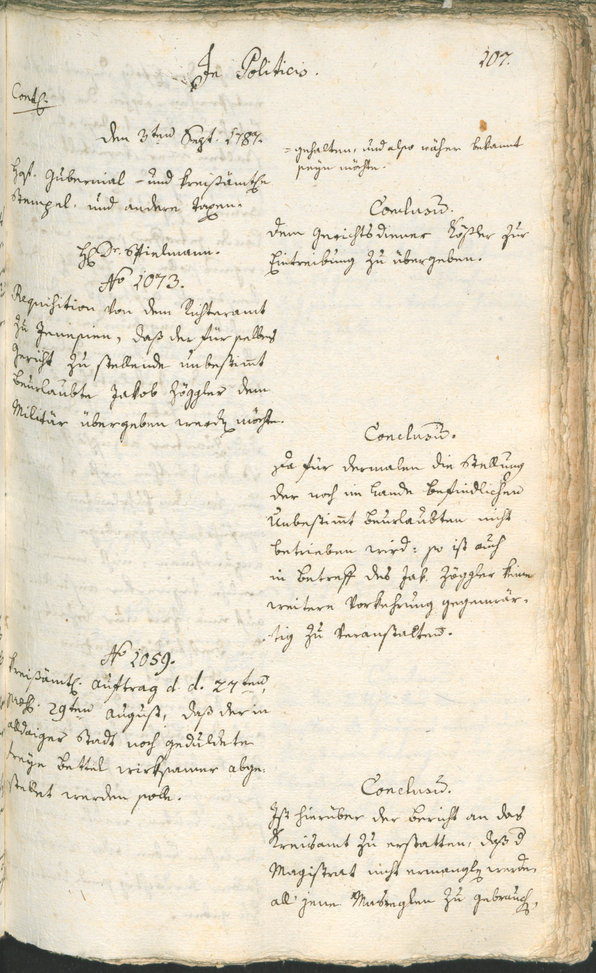 In Politicis.
107.
Conth:
den 3ten Sept. 1787.
Hgl. Gubernial- und kreisämtle
Stempel- und andere taxen.
H Dr. Spielmann.
No 1073.
Requisition von dem Richteramt
zu Jenesien, daß der für selbes
Gericht zu stellende unbestimt
beurlaubte Jakob Zöggler dem
Militär übergeben werdn möchte.
No 1059.
Kreisämtl. Auftrag d. d. 27ten,
29ten August, daß der in
alldaiger Stadt noch geduldete
freye bettel wirksamer abge-
stellet werden solle.
=gehalten, und also näher bekannt
seyn möchte.
Conclusũ.
Dem Gerichtsdiener Kößler zur
Eintreibung zu übergeben.
Conclusũ.
Da für dermalen die Stellung
der noch im Lande befindlichen
Unbestimt beurlaubten nicht
betrieben wird: so ist auch
in betreff des Jak. Zöggler keine
weitere Vorkehrung gegenwär-
tig zu veranstalten.
Conclusũ.
Ist hierüber der bericht an das
Kreisamt zu erstatten, daß d
Magistrat nicht ermangln werde,
all jene Masreglen zu gebrauch,